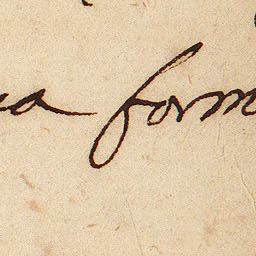 a form